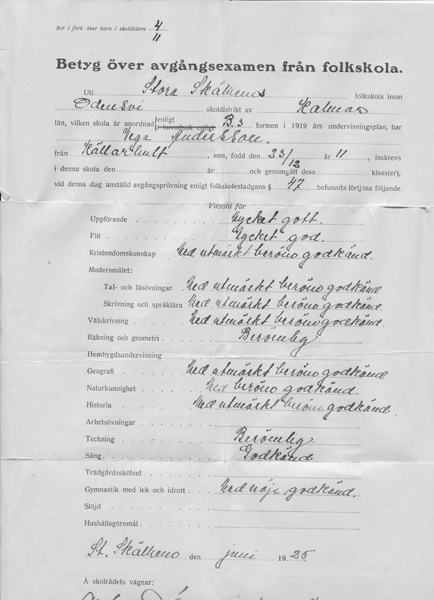 N:r i fört. över barn i skolåldern 4/11
Betyg över avgångsexamen från folkskola.
Uti Stora Skälhems folkskola inom
Odensvi skoldistrikt av Kalmar
län, vilken skola är anordnad enligt i huvudsak enligt B.3 formen i 1919 års undervisningsplan, har
Vega Andersson
från Källarhult, som, född den 23/12 år 11, inskrevs
i denna skola den år och genomgått dess klass(er),
vid denna dag anställd avgångsprövning enligt folkskolestadgans § 47 befunnits förtjina följande
Vitsord för
Uppförande Mycket gott.
Flit Mycket god.
Kristendomskunskap Med utmärkt beröm godkänd.
Modersmålet:
Tal- och läsövningar Med utmärkt beröm godkänd
Skrivning och språklära Med utmärkt beröm godkänd.
Välskrivning Med utmärkt beröm godkänd.
Räkning och geometri Berömlig
Hembygdsundervisning
Geografi Med utmärkt beröm godkänd
Naturkunnighet Med beröm godkänd.
Historia Med utmärkt beröm godkänd.
Arbetsövningar
Teckning Berömlig
Sång Godkänd
Trädgårdsskötsel
Gymnastik med lek och idrott Med nöje godkänd.
Slöjd
Hushållsgöromål
St. Skälhem den juni 1925
Å skolrådets vägnar: